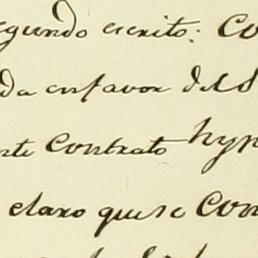 egundo escrito: Co
da en favor del S
nte Contrato hyp
claro que se Con